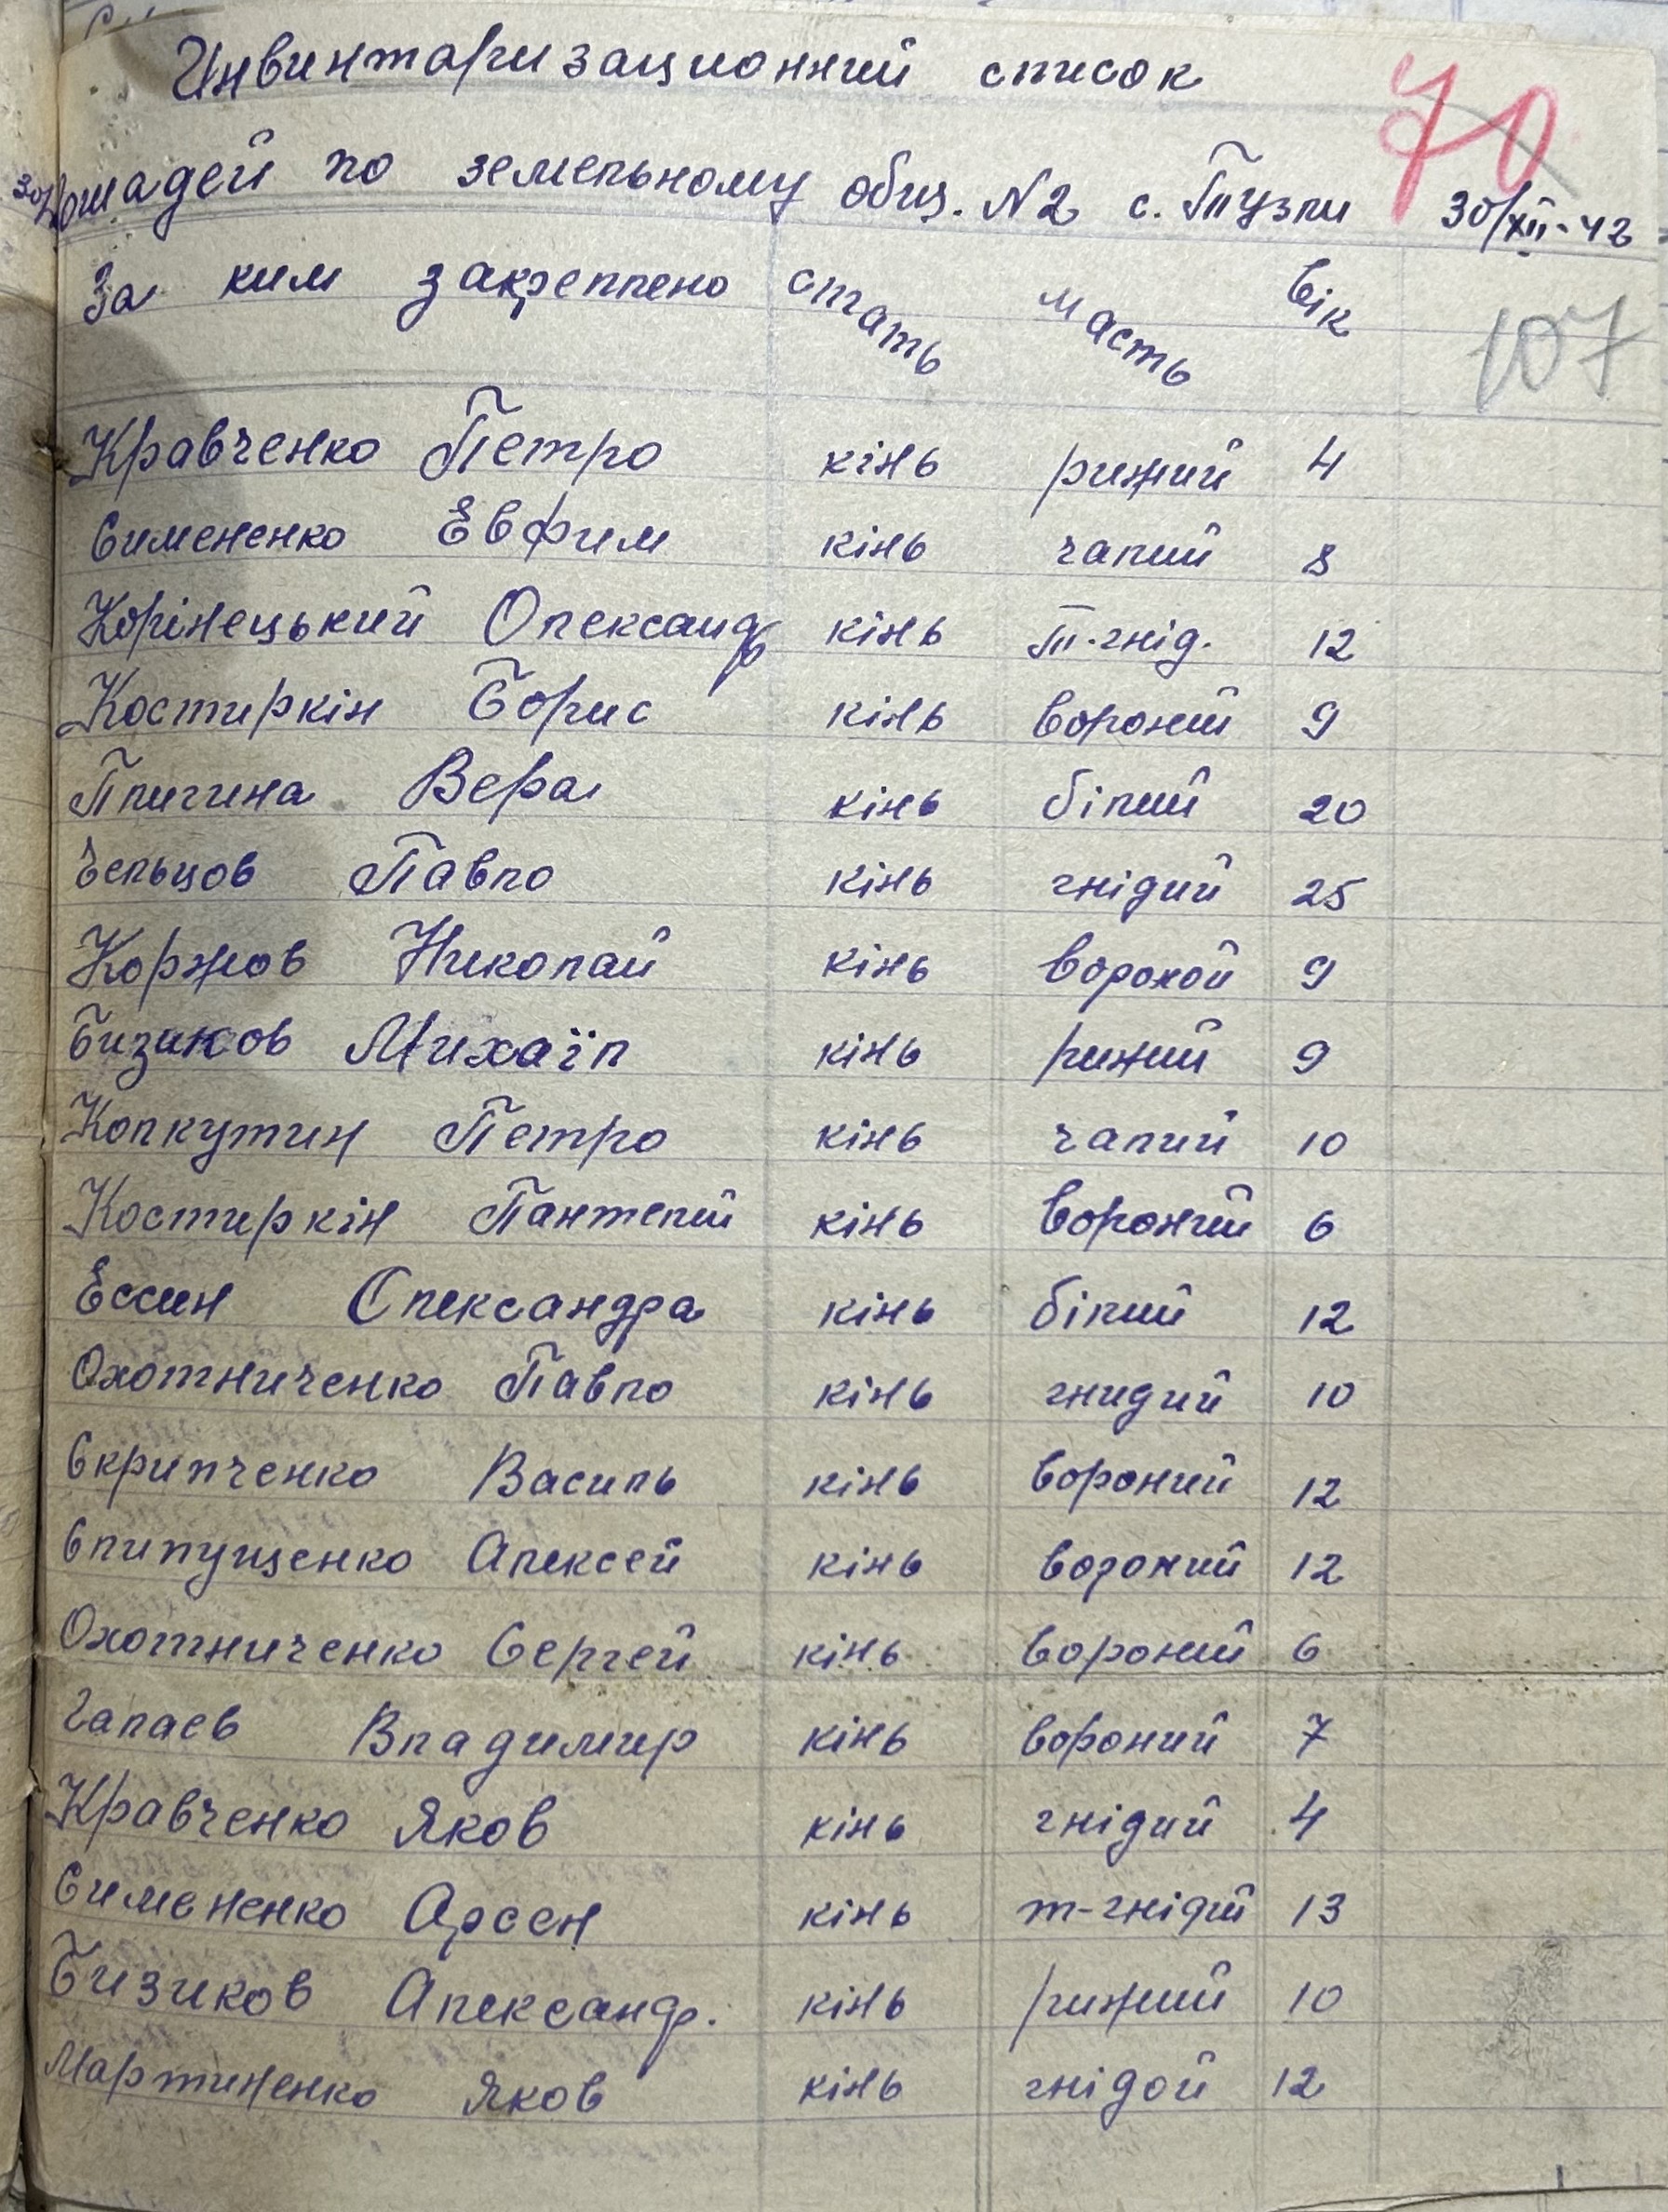 Инвинтаризационний список
70
лошадей по земельному общ. N2 с. Тузли 30/XII-42
За ким закреплено стать масть вік
107
Кравченко Петро кінь рижий 4
Симененко Евфим кінь чалий 8
Корінецький Олександр кінь т-гнід. 12
Костиркін Борис кінь вороний 9
Пличина Вера кінь білий 20
Чельцов Павло кінь гнідий 25
Коржов Николай кінь вороной 9
Бизиков Михаїл кінь рижий 9
Колкутин Петро кінь чалий 10
Костиркін Пантелий кінь вороний 6
Ессин Олександра кінь білий 12
Охотниченко Павло кінь гнидий 10
Скрипченко Василь кінь вороний 12
Слипущенко Алексей кінь вороний 12
Охотниченко Сергей кінь вороний 6
Чапаев Владимир кінь вороний 7
Кравченко Яков кінь гнідий 4
Симененко Арсен кінь т-гнідий 13
Бизиков Александр. кінь рижий 10
Мартиненко Яков кінь гнідой 12